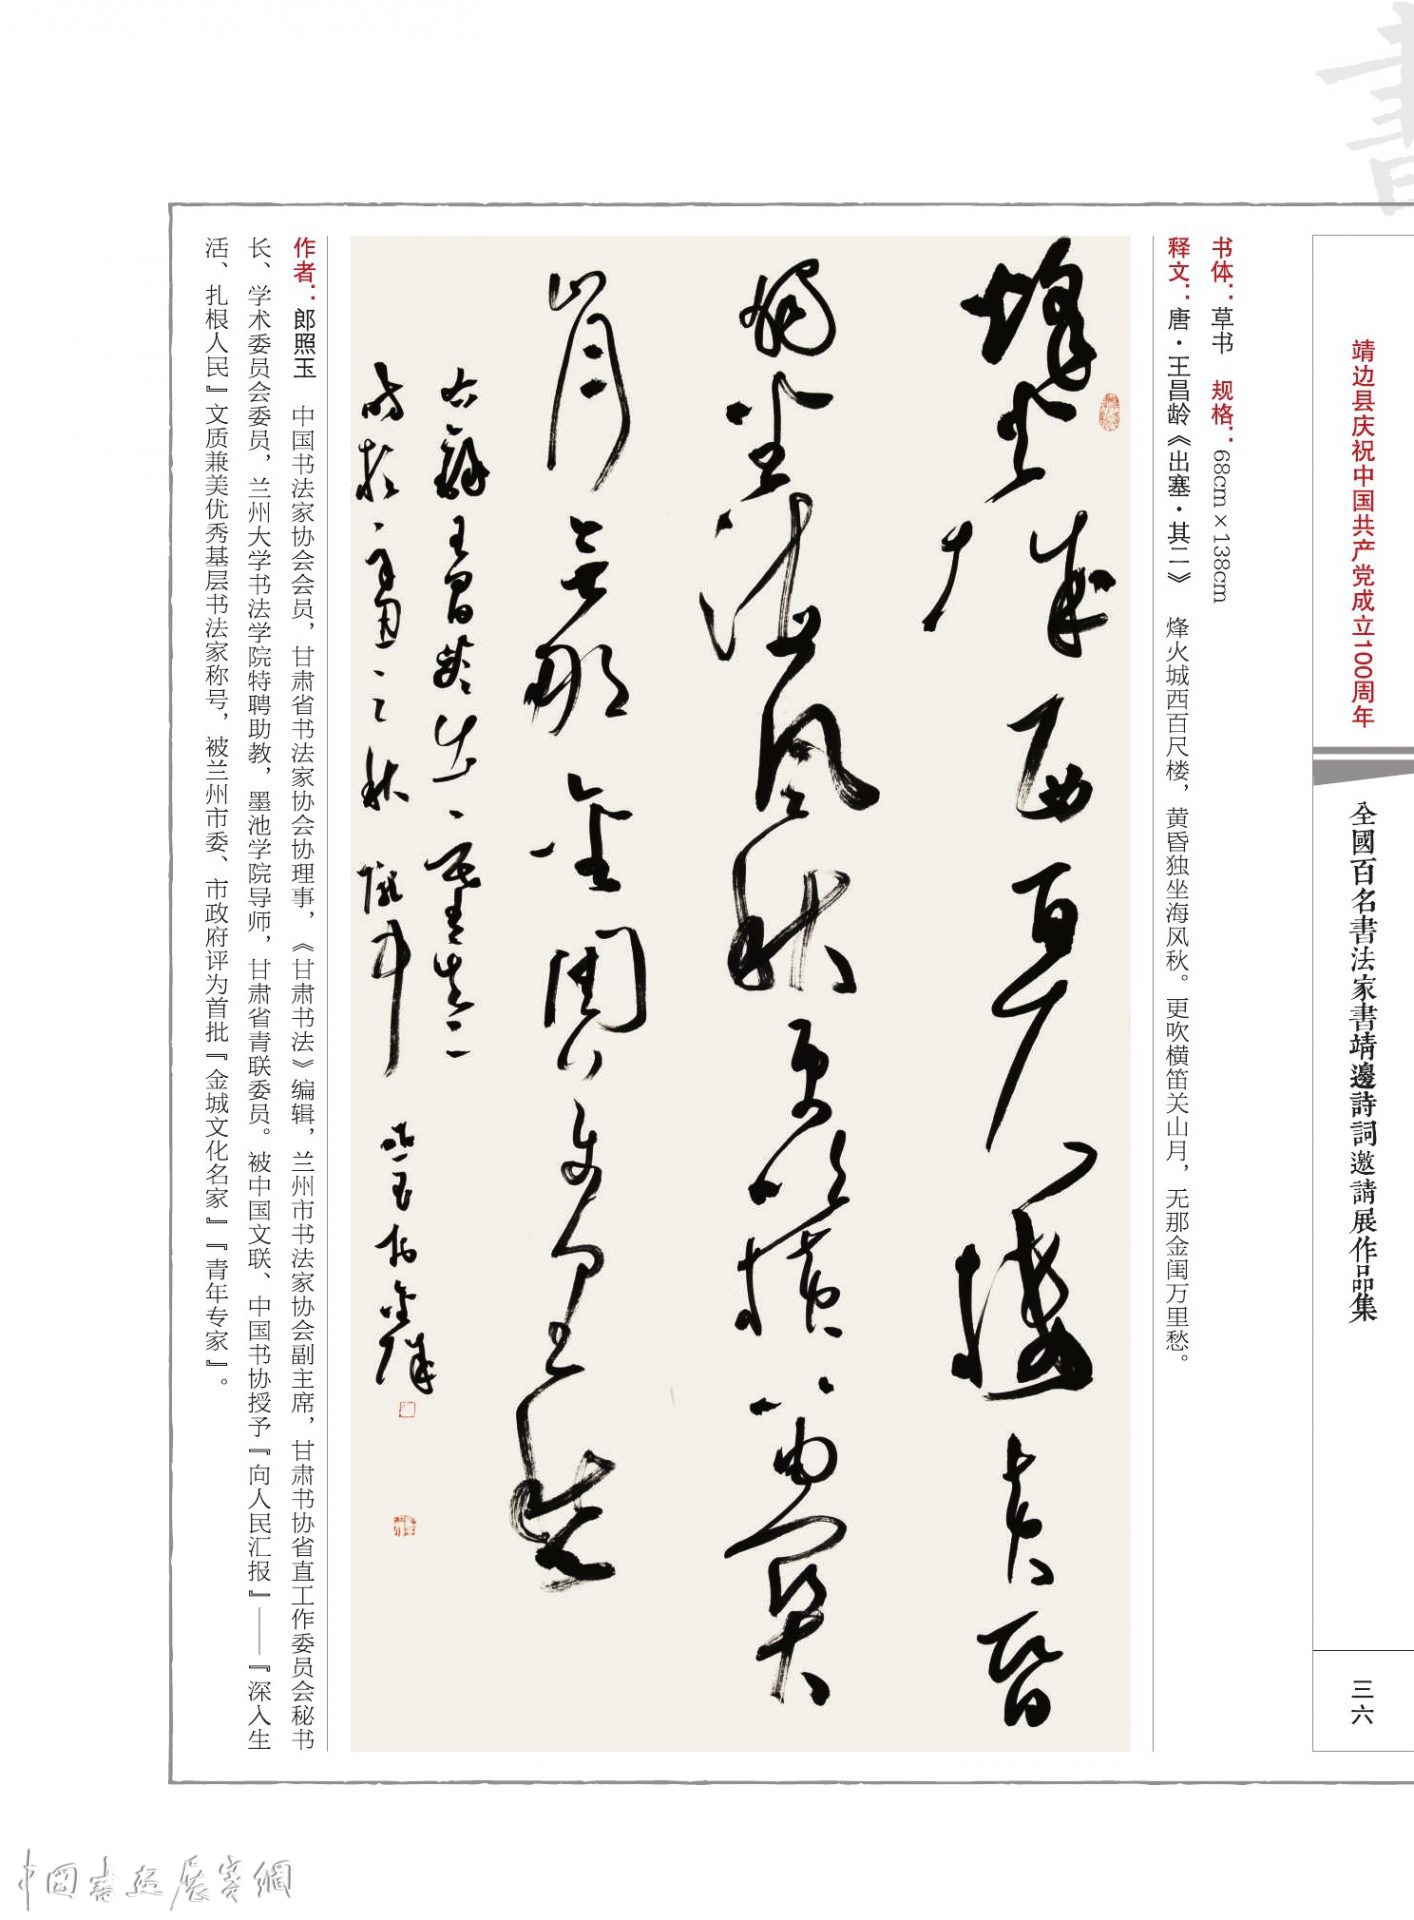 書
靖边县庆祝中国共产党成立100周年
全國百名書法家書靖邊詩詞邀請展作品集
三六
书体：草书 规格：68cm×138cm
释文：唐·王昌龄《出塞·其二》 烽火城西百尺楼，黄昏独坐海风秋。更吹横笛关山月，无那金闺万里愁。
烽火城西百尺樓黄昏
獨坐海風秋更吹横笛關
山月無那金閨万里愁
作者：郎照玉 中国书法家协会会员，甘肃省书法家协会协理事，《甘肃书法》编辑，兰州市书法家协会副主席，甘肃书协省直工作委员会秘书
长、学术委员会委员，兰州大学书法学院特聘助教，墨池学院导师，甘肃省青联委员。被中国文联、中国书协授予『向人民汇报』——『深入生
活、扎根人民』文质兼美优秀基层书法家称号，被兰州市委、市政府评为首批『金城文化名家』『青年专家』。
中國書畫展賽網